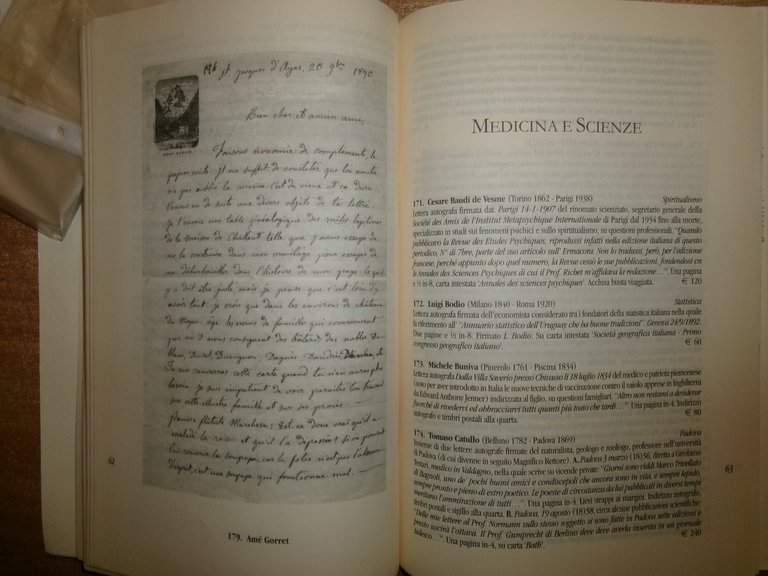 St Jacques d'Ayas, 20 9bre 1890
Bien cher et ancien ami,
Faisons économie de compléments, le
papier coûte. Il me suffit de constater que ton amitié
n'a pas oublié la mienne
de suite aux divers objets de ta lettre.
Je t'envoie une table généalogique des mâles légitimes
de la maison de Challant telle que j'avais essayé de
me la construire dans mon
me débarbouiller dans l'histoire de mon pays. Ce qu'il
y a doit être juste mais je pense que c'est loin d'y
avoir tout. Je crois que dans les environs de château
du Moyen-âge les noms de famille qui commencent
par un D nous consignent des bâtards des nobles
Tu me renverras cette carte quand tu n'en auras plus
besoin. Je suis impatient de voir paraître ton travail
sur cette illustre famille et sur ses
Est-ce donc vrai qu'il a
la raison et qu'il l'a dépassée! Si on pouvait
lui ouvrir la soupape, car la folie n'est pas l'absence
d'esprit, c'est une soupape qui fonctionne mal.
62
179. Amé Gorret
MEDICINA E SCIENZE
171. Cesare Baudi de Vesme (Torino 1862 - Parigi 1938) Spiritualismo
Lettera autografa firmata dat. Parigi 14-1-1907 del rinomato scienziato, segretario generale della
Société des Amis de l'Institut Metapsychique Internationale di Parigi dal 1934 fino alla morte,
specializzato in studi sui fenomeni psichici e sullo spiritualismo, su questioni professionali. "Quando
pubblicavo la Revue des Etudes Psychiques, riprodussi infatti nella edizione italiana di questo
periodico, N° di 7bre, parte del suo articolo sull'Ermacora. Non lo tradussi, però, per l'edizione
francese, perché appunto dopo quel numero, la Revue cessò le sue pubblicazioni, fondendosi cn
le Annales des Sciences Psychiques di cui il Prof. Richet m'affidava la redazione...". Una pagina
e ½ in-8, carta intestata 'Annales des sciences psychiques'. Acclusa busta viaggiata. € 120
172. Luigi Bodio (Milano 1840 - Roma 1920) Statistica
Lettera autografa firmata dell'economista considerato tra i fondatori della statistica italiana nella quale
fa riferimento all' "Annuario statistico dell'Uruguay che ha buone tradizioni". Genova 24/9/1892.
Due pagine e ½ in-8. Firmato L. Bodio. Su carta intestata 'Società geografica italiana - Primo
congresso geografico italiano'. € 60
173. Michele Buniva (Pinerolo 1761 - Piscina 1834)
Lettera autografa Dalla Villa Saverio presso Chivasso li 18 luglio 1834 del medico e patriota piemontese
(noto per aver introdotto in Italia le nuove tecniche di vaccinazione contro il vaiolo apprese in Inghilterra
da Edward Anthony Jenner) indirizzata al figlio, su questioni famigliari. "Altro non restami a desiderar
fuorché di rivederci ed abbracciarci tutti quanti più tosto che tardi...". Una pagina in-4. Indirizzo
autografo e timbri postali alla quarta. € 80
174. Tomaso Catullo (Belluno 1782 - Padova 1869) Padova
Insieme di due lettere autografe firmate del naturalista, geologo e zoologo, professore nell'università
di Padova (di cui divenne in seguito Magnifico Rettore). A. Padova 3 marzo (18)56, diretta a Girolamo
Testari, medico in Valdagno, nella quale scrive su vicende private: "Giorni sono viddi Marco Trinellato
di Bagnoli, uno de' pochi buoni amici e condiscepoli che ancora sono in vita, e sempre lepido,
sempre pronto e pieno di estro poetico. Le poesie di circostanza da lui pubblicati in diversi tempi
meritano l'ammirazione di tutti...". Una pagina in-4. Lievi strappi ai margini. Indirizzo autografo,
timbri postali e sigillo alla quarta. B. Padova, 19 agosto (18)58, circa alcune pubblicazioni scientifiche:
"Delle mie lettere al Prof. Normann sullo stesso soggetto si sono fatte in Padova sette edizioni e
presto uscirà l'ottava. Il Prof. Gumprecht di Berlino deve deve averla inserita in un giornale
tedesco...". Una pagina in-4, su carta 'Bath'. € 240
63